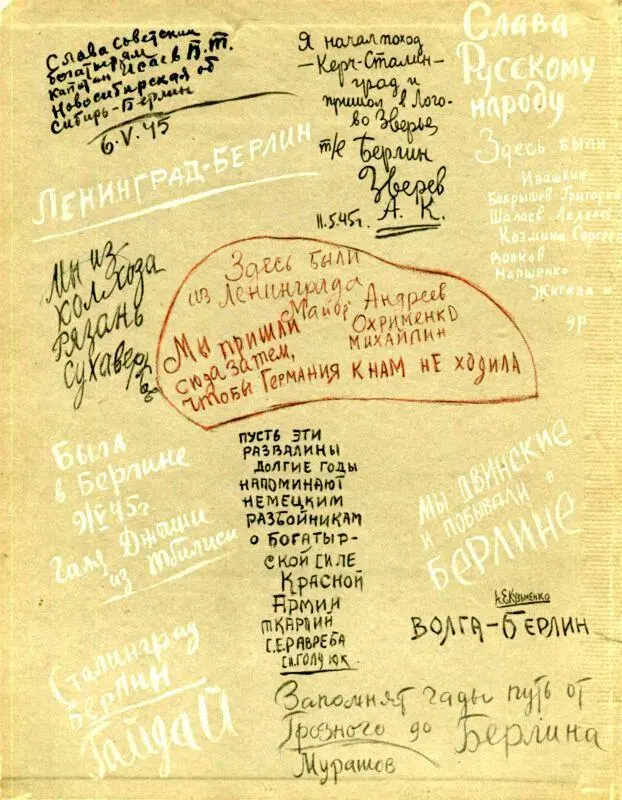 Слава советским
богатырям
капитан Исаев П.Т.
Новосибирская об
Сибирь-Берлин
6.V.45
Я начал поход
-Керч-Сталин-
град и
пришол в Лого-
во Зверье
т/е Берлин
Зверев
А. К.
11.5.45г.
Слава
Русскому
народу
Здесь были
Ивашкин
Бобрышев Григорь
Шалаев
Козмина Сергее
Волков
Мапшенко
др.
Ленинград-Берлин
Мы из
колхоза
Рязань
Здесь были
из Ленинграда
Майор Андреев
Охрименко
Михайлин
Мы пришли
сюда затем,
чтобы Германия к нам не ходила
Была
в Берлине
9/V 45г.
Галя Джаши
из Тбилиси
пусть эти
развалины
долгие годы
напоминают
немецким
разбойникам
о богатыр-
ской силе
Красной
Армии
Мы двинские
и побывали в
Берлине
А.Е.Кузьменко
Волга-Берлин
Сталинград
Берлин
Гайдай
Запомнят гады путь от
Грозного до Берлина
Мурашов